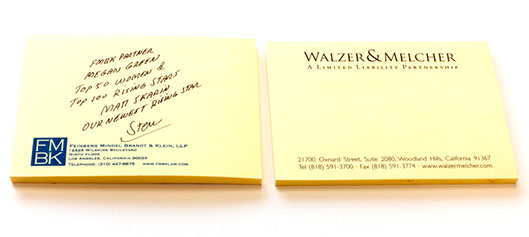 FMBK PARTNER
MEGAN GREEN
TOP 50 WOMEN &
TOP 100 RISING STARS
MATT SKARIN
OUR NEWEST RISING STAR
Steve
FM
BK
FEINBERG MINDEL BRANDT & KLEIN, LLP
12424 WILSHIRE BOULEVARD
NINTH FLOOR
LOS ANGELES, CALIFORNIA 90025
TELEPHONE: (310) 447-8675 www.fmbklaw.com
WALZER&MELCHER
A LIMITED LIABILITY PARTNERSHIP
21700 Oxnard Street, Suite 2080, Woodland Hills, California 91367
Tel (818) 591-3700 · Fax (818) 591-3774 · www.walzermelcher.com